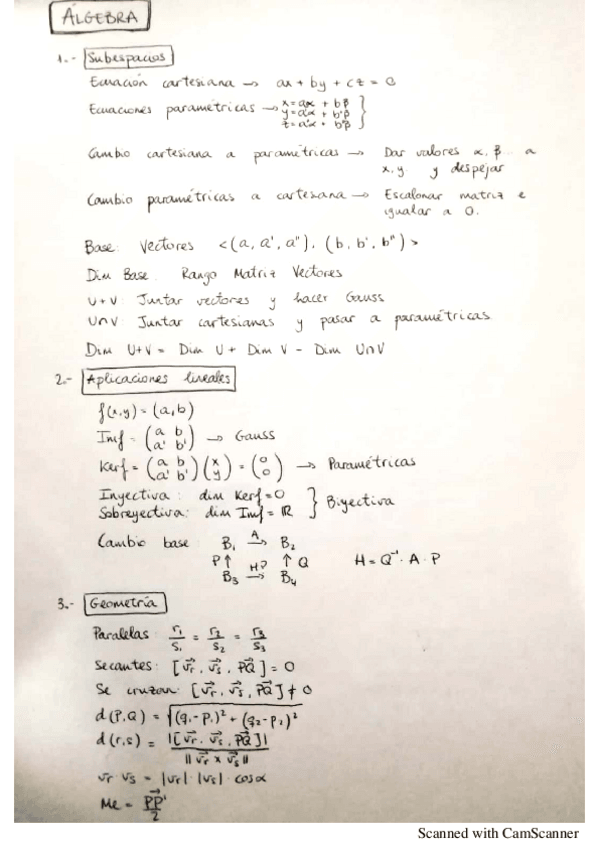 ÁLGEBRA
1.- Subespacios
Ecuación cartesiana → ax + by + cz = 0
Ecuaciones paramétricas → x = aα + bβ
y = a'α + b'β
z = a"α + b"β }
Cambio cartesiana a paramétricas → Dar valores α, β... a
x, y... y despejar
Cambio paramétricas a cartesiana → Escalonar matriz e
igualar a 0.
Base: Vectores <(a, a', a"), (b, b', b")>
Dim Base: Rango Matriz Vectores
U+V: Juntar vectores y hacer Gauss
U∩V: Juntar cartesianas y pasar a paramétricas
Dim U+V = Dim U + Dim V - Dim U∩V
2.- Aplicaciones lineales
f(x,y) = (a, b)
Imf = (a b
a' b') → Gauss
Kerf = (a b
a' b') (x
y) = (0
0) → Paramétricas
Inyectiva: dim Kerf = 0
Sobreyectiva: dim Imf = ℝ } Biyectiva
Cambio base: B₁ A→ B₂
P↑ H? ↑Q H = Q⁻¹ · A · P
B₃ → B₄
3.- Geometría
Paralelas: r₁/s₁ = r₂/s₂ = r₃/s₃
Secantes: [vr, vs, PQ] = 0
Se cruzan: [vr, vs, PQ] ≠ 0
d(P,Q) = √(q₁-p₁)² + (q₂-p₂)²
d(r,s) = |[vr, vs, PQ]|
|| vr x vs ||
vr · vs = |vr| · |vs| · cosα
Me = PP'/2
Scanned with CamScanner